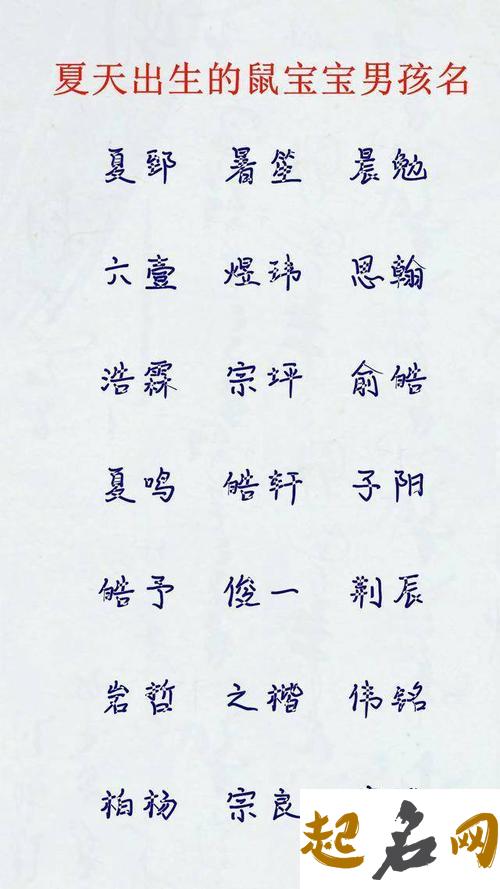 夏天出生的鼠宝宝男孩名
夏郅 暑笙 晨勉
六壹 煜玮 思翰
浩霖 宗坪 俞皓
夏鸣 皓轩 子阳
皓予 俊一 荆辰
岩哲 之楷 伟铭
柏杨 宗良
起名网